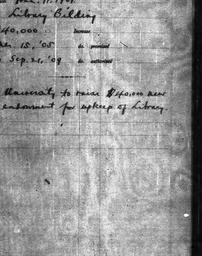 Library Bilding
40,000 Increase
15, '05 do promised
Sep. 21, '09 do authorized
University to raise $40,000 new
endowment for upkeep of Library